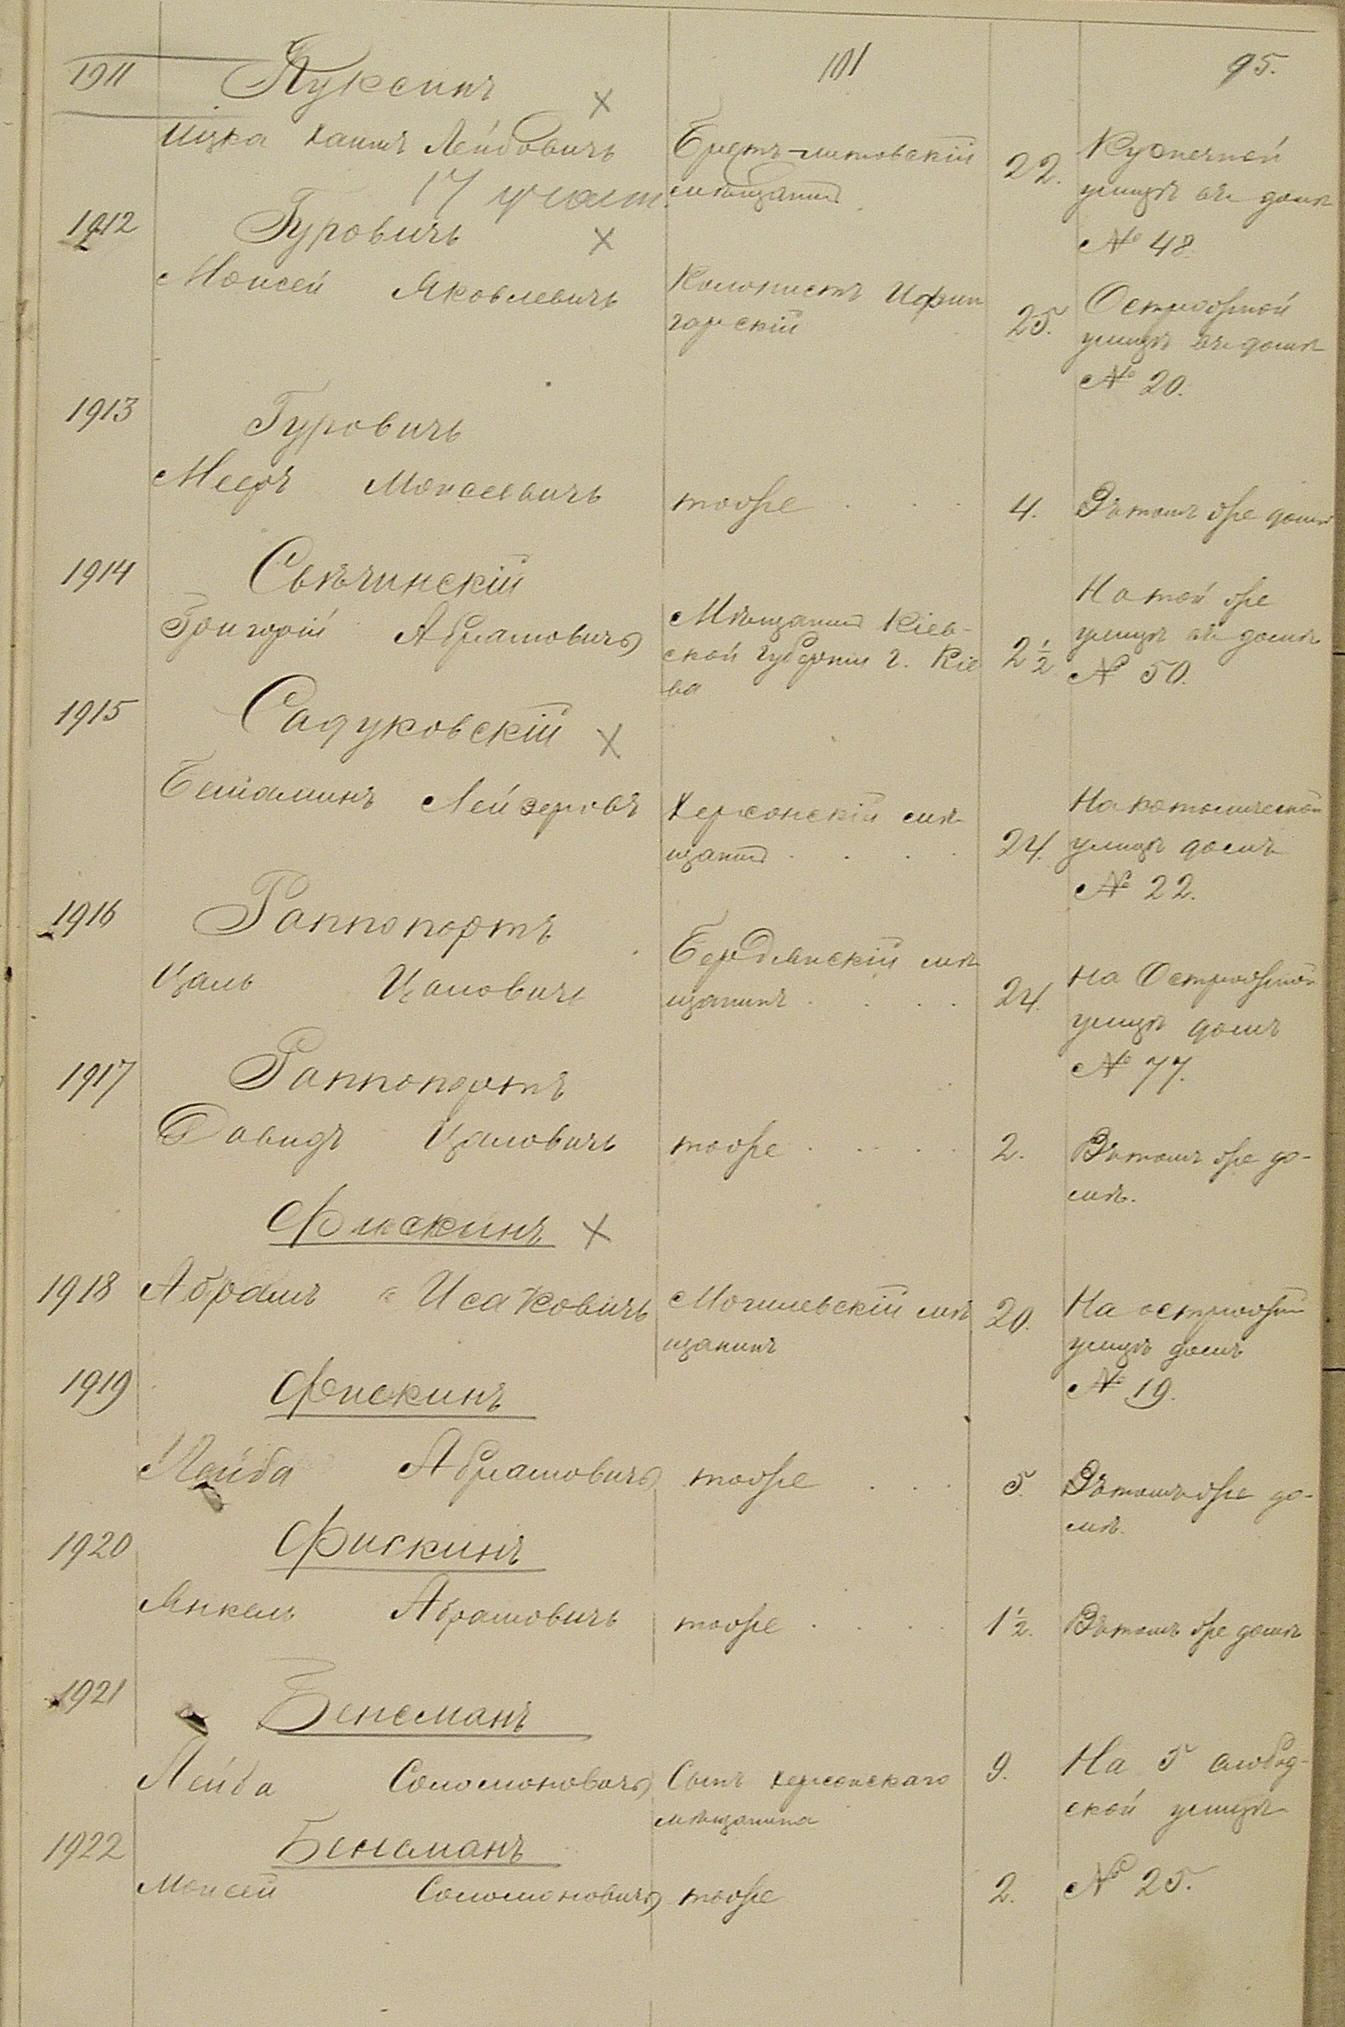 101 95.
1911 Пуксинъ ×
Ицка Хаимъ Лейбовичъ Брестъ-литовскій 22. Кузнечной
17 участ. мѣщанинъ улицѣ въ домѣ
№ 48.
1912 Гуровичъ ×
Моисей Яковлевичъ Колонистъ 25. Острожной
гарскій улицѣ въ домѣ
№ 20.
1913 Гуровичъ
Мееръ Моисеевичъ тоже . . . 4. Въ томъ же домѣ
1914 Свѣчинскій На той же
Григорій Абрамовичъ Мѣщанинъ Кіев- 2 1/2 улицѣ въ домѣ
ской губерніи г. Кіе № 50.
ва
1915 Садуковскій ×
Беніаминъ Лейзеровъ Херсонскій мѣ На католической
щанинъ . . . . 24. улицѣ домъ
№ 22.
1916 Раппопортъ
Цаль Цаловичъ Бердянскій мѣ На Острожной
щанинъ . . . . 24. улицѣ домъ
№ 77.
1917 Раппопортъ
Давидъ Цаловичъ тоже . . . . 2. Въ томъ же до-
мѣ.
Фискинъ ×
1918 Абрамъ Исаковичъ Могилевскій мѣ 20. На острожной
щанинъ улицѣ домъ
№ 19.
1919 Фискинъ
Лейба Абрамовичъ тоже . . . 5. Въ томъ же до-
мѣ.
1920 Фискинъ
Янкель Абрамовичъ тоже . . . . 1 1/2. Въ томъ же домѣ
1921 Бенсманъ
Лейба Соломоновичъ Сынъ херсонскаго 9. На 5 слобод-
мѣщанина ской улицѣ
1922 Бенсманъ
Моисей Соломоновичъ тоже 2. № 25.